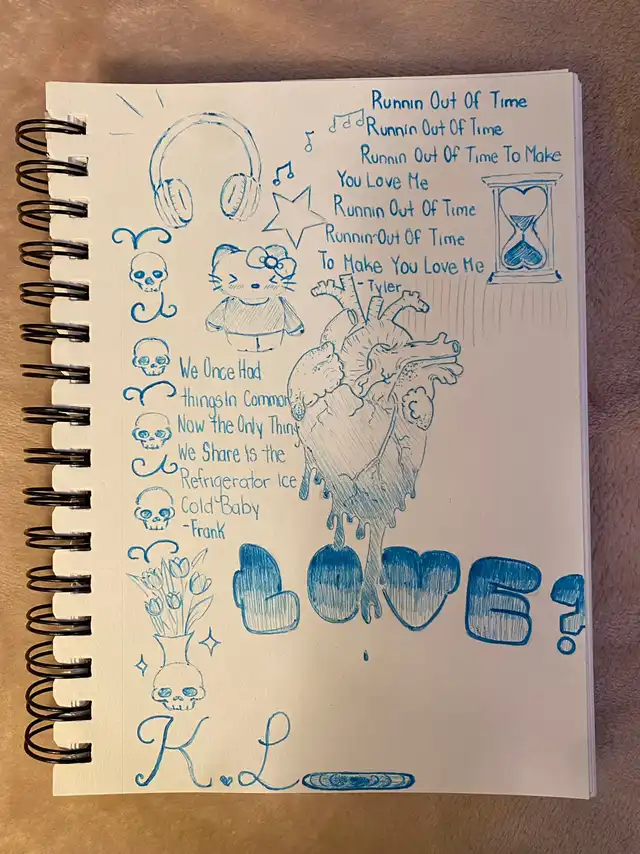 Runnin Out Of Time
Runnin Out Of Time
Runnin Out Of Time To Make
You Love Me
Runnin Out Of Time
Runnin Out Of Time
To Make You Love Me
- Tyler
We Once Had
things In Common
Now the Only Thing
We Share Is the
Refrigerator Ice
Cold Baby
-Frank
LOVE?
K. L